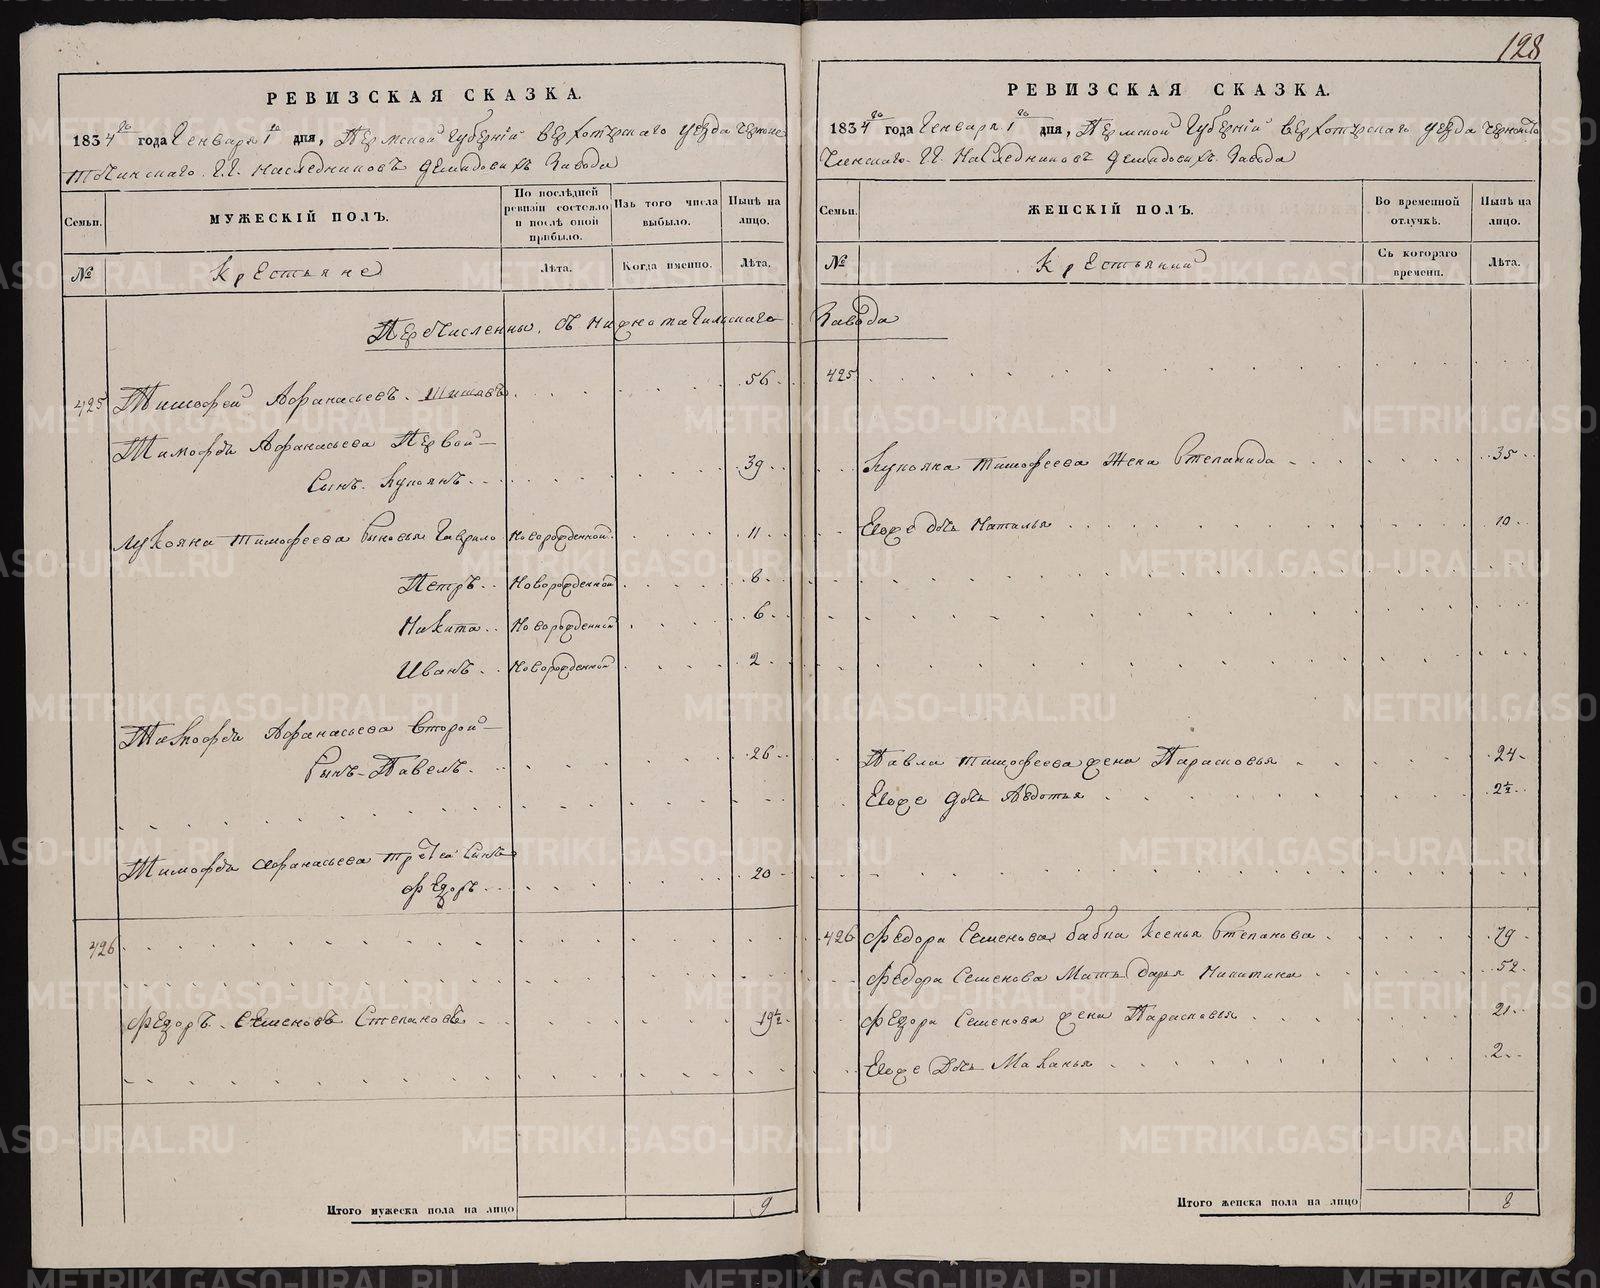 128
РЕВИЗСКАЯ СКАЗКА.
1834го года Генваря 1го дня, Пермской Губернiи Верхотурскаго уезда Черноис
точинскаго Г.Г. Наследниковъ Демидовыхъ Завода
Семьи.
МУЖЕСКIЙ ПОЛЪ.
По послѣдней ревизiи состояло и послѣ оной прибыло.
Изъ того числа выбыло.
Нынѣ на лицо.
№
Крестьяне
Лѣта.
Когда именно.
Лѣта.
Перечисленны съ Нижнотагильскаго
425 Тимофей Афанасьевъ Шишовъ 56
Тимофея Афанасьева Первой
Сынъ Лукоянъ 39
Лукояна Тимофеева Сыновья Гаврило Новорожденной 11
Петръ Новорожденной 8
Никита Новорожденной 6
Иванъ Новорожденной 2
Тимофея Афанасьева Второй
Сынъ Павелъ 26
Тимофея Афанасьева третей Сынъ
Федоръ 20
426
Федоръ Семеновъ Степановъ 19½
Итого мужеска пола на лицо 9
РЕВИЗСКАЯ СКАЗКА.
1834го года Генваря 1го дня, Пермской Губернiи Верхотурскаго уезда Черноисто
чинскаго Г.Г. Наследниковъ Демидовыхъ Завода
Семьи.
ЖЕНСКIЙ ПОЛЪ.
Во временной отлучкѣ.
Нынѣ на лицо.
№
Крестьянки
Съ котораго времени.
Лѣта.
Завода
425
Лукояна Тимофеева Жена Степанида 35
Евоже дочь Наталья 10
Павла Тимофеева жена Парасковья 24
Евоже дочь Авдотья 2½
426 Федора Семенова бабка Ксенья Степанова 79
Федора Семенова Мать Дарья Никитина 52
Федора Семенова жена Парасковья 21
Евоже Дочь Маланья 2
Итого женска пола на лицо 8
METRIKI.GASO-URAL.RU